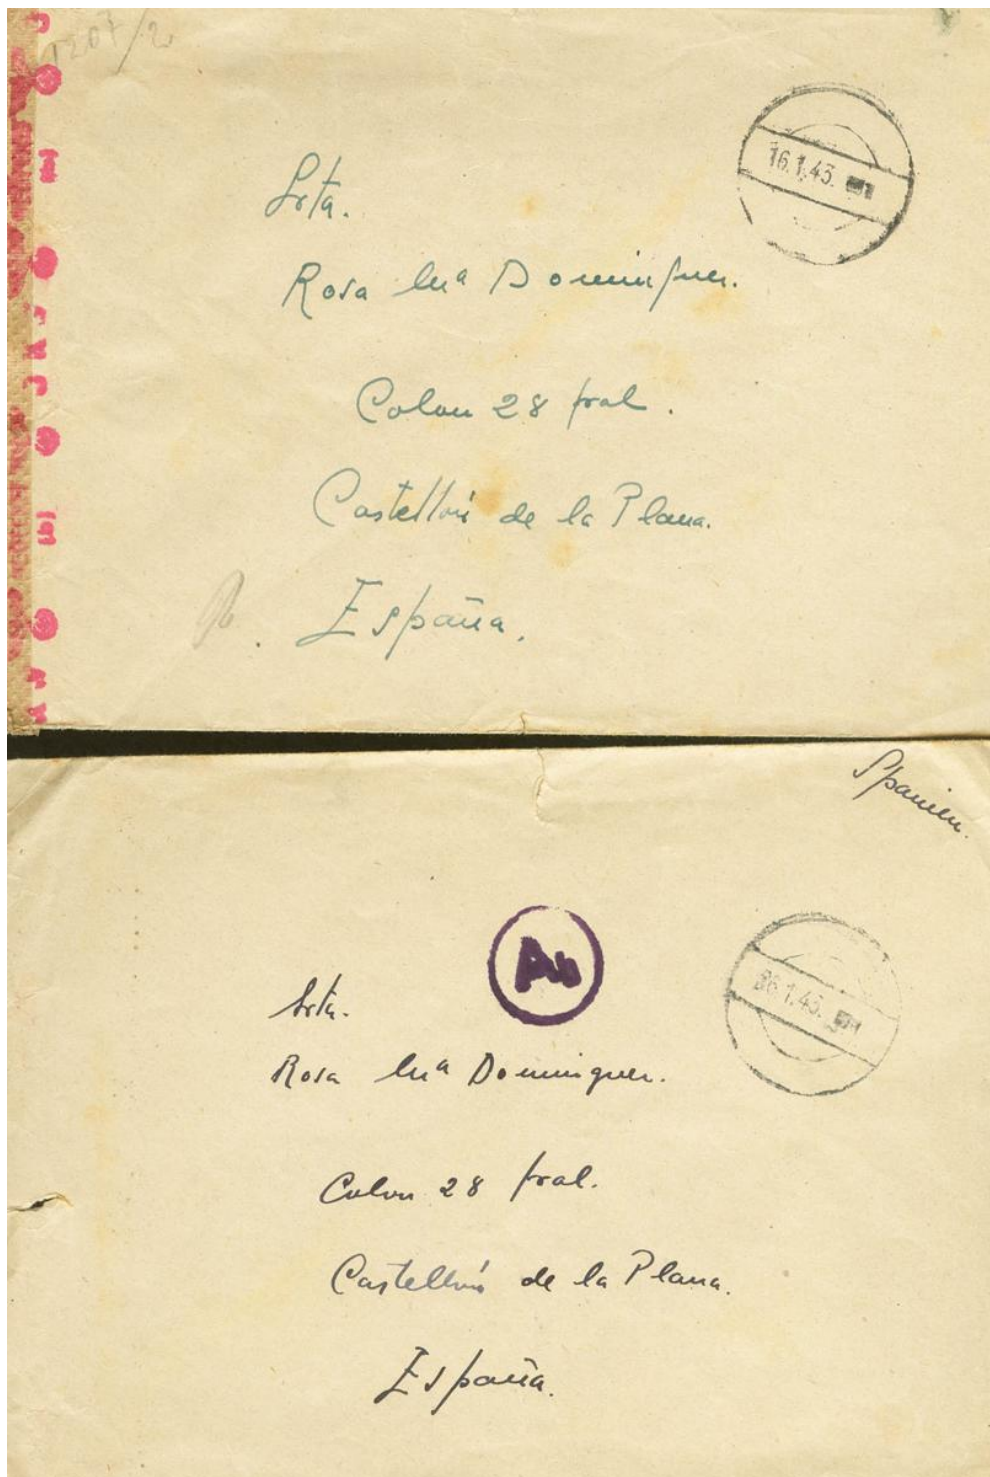 1207/2
16.1.43.
Srta.
Rosa Mª Dominguez.
Colon 28 pral.
Castellón de la Plana.
España.
Spanien.
Ab
26.1.43.
Srta.
Rosa Mª Dominguez.
Colon 28 pral.
Castellón de la Plana.
España.